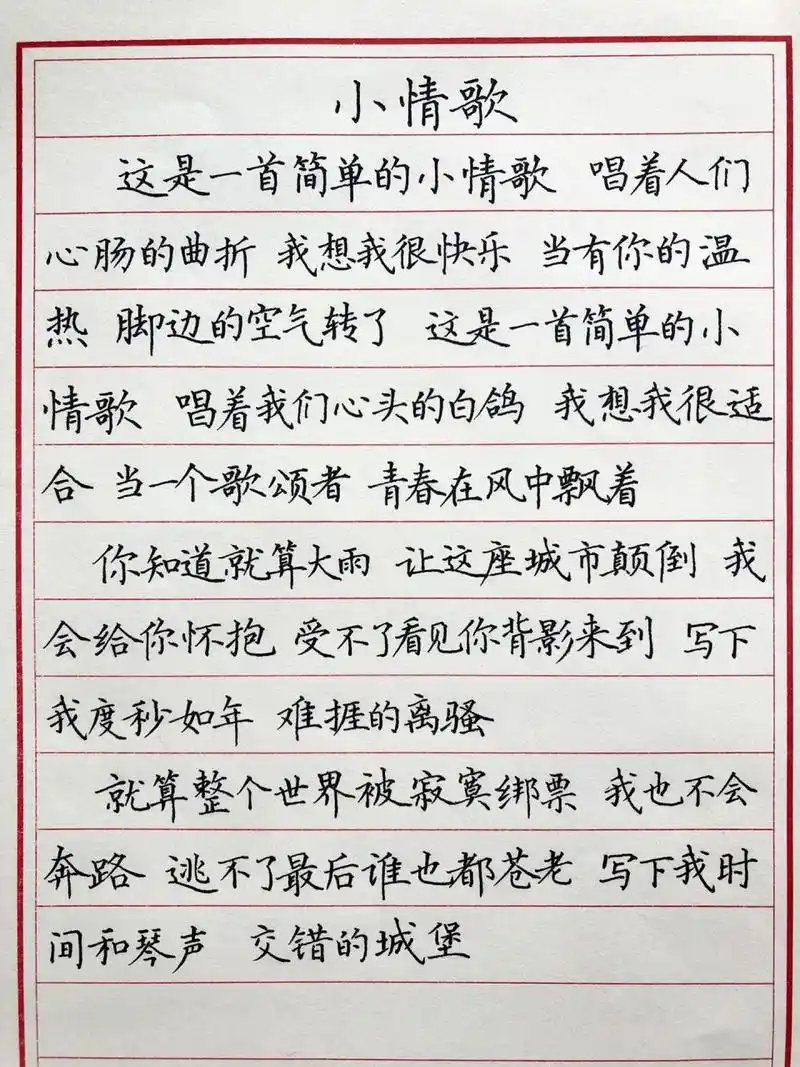 小情歌
这是一首简单的小情歌 唱着人们
心肠的曲折 我想我很快乐 当有你的温
热 脚边的空气转了 这是一首简单的小
情歌 唱着我们心头的白鸽 我想我很适
合 当一个歌颂者 青春在风中飘着
你知道就算大雨 让这座城市颠倒 我
会给你怀抱 受不了看见你背影来到 写下
我度秒如年 难捱的离骚
就算整个世界被寂寞绑票 我也不会
奔路 逃不了最后谁也都苍老 写下我时
间和琴声 交错的城堡